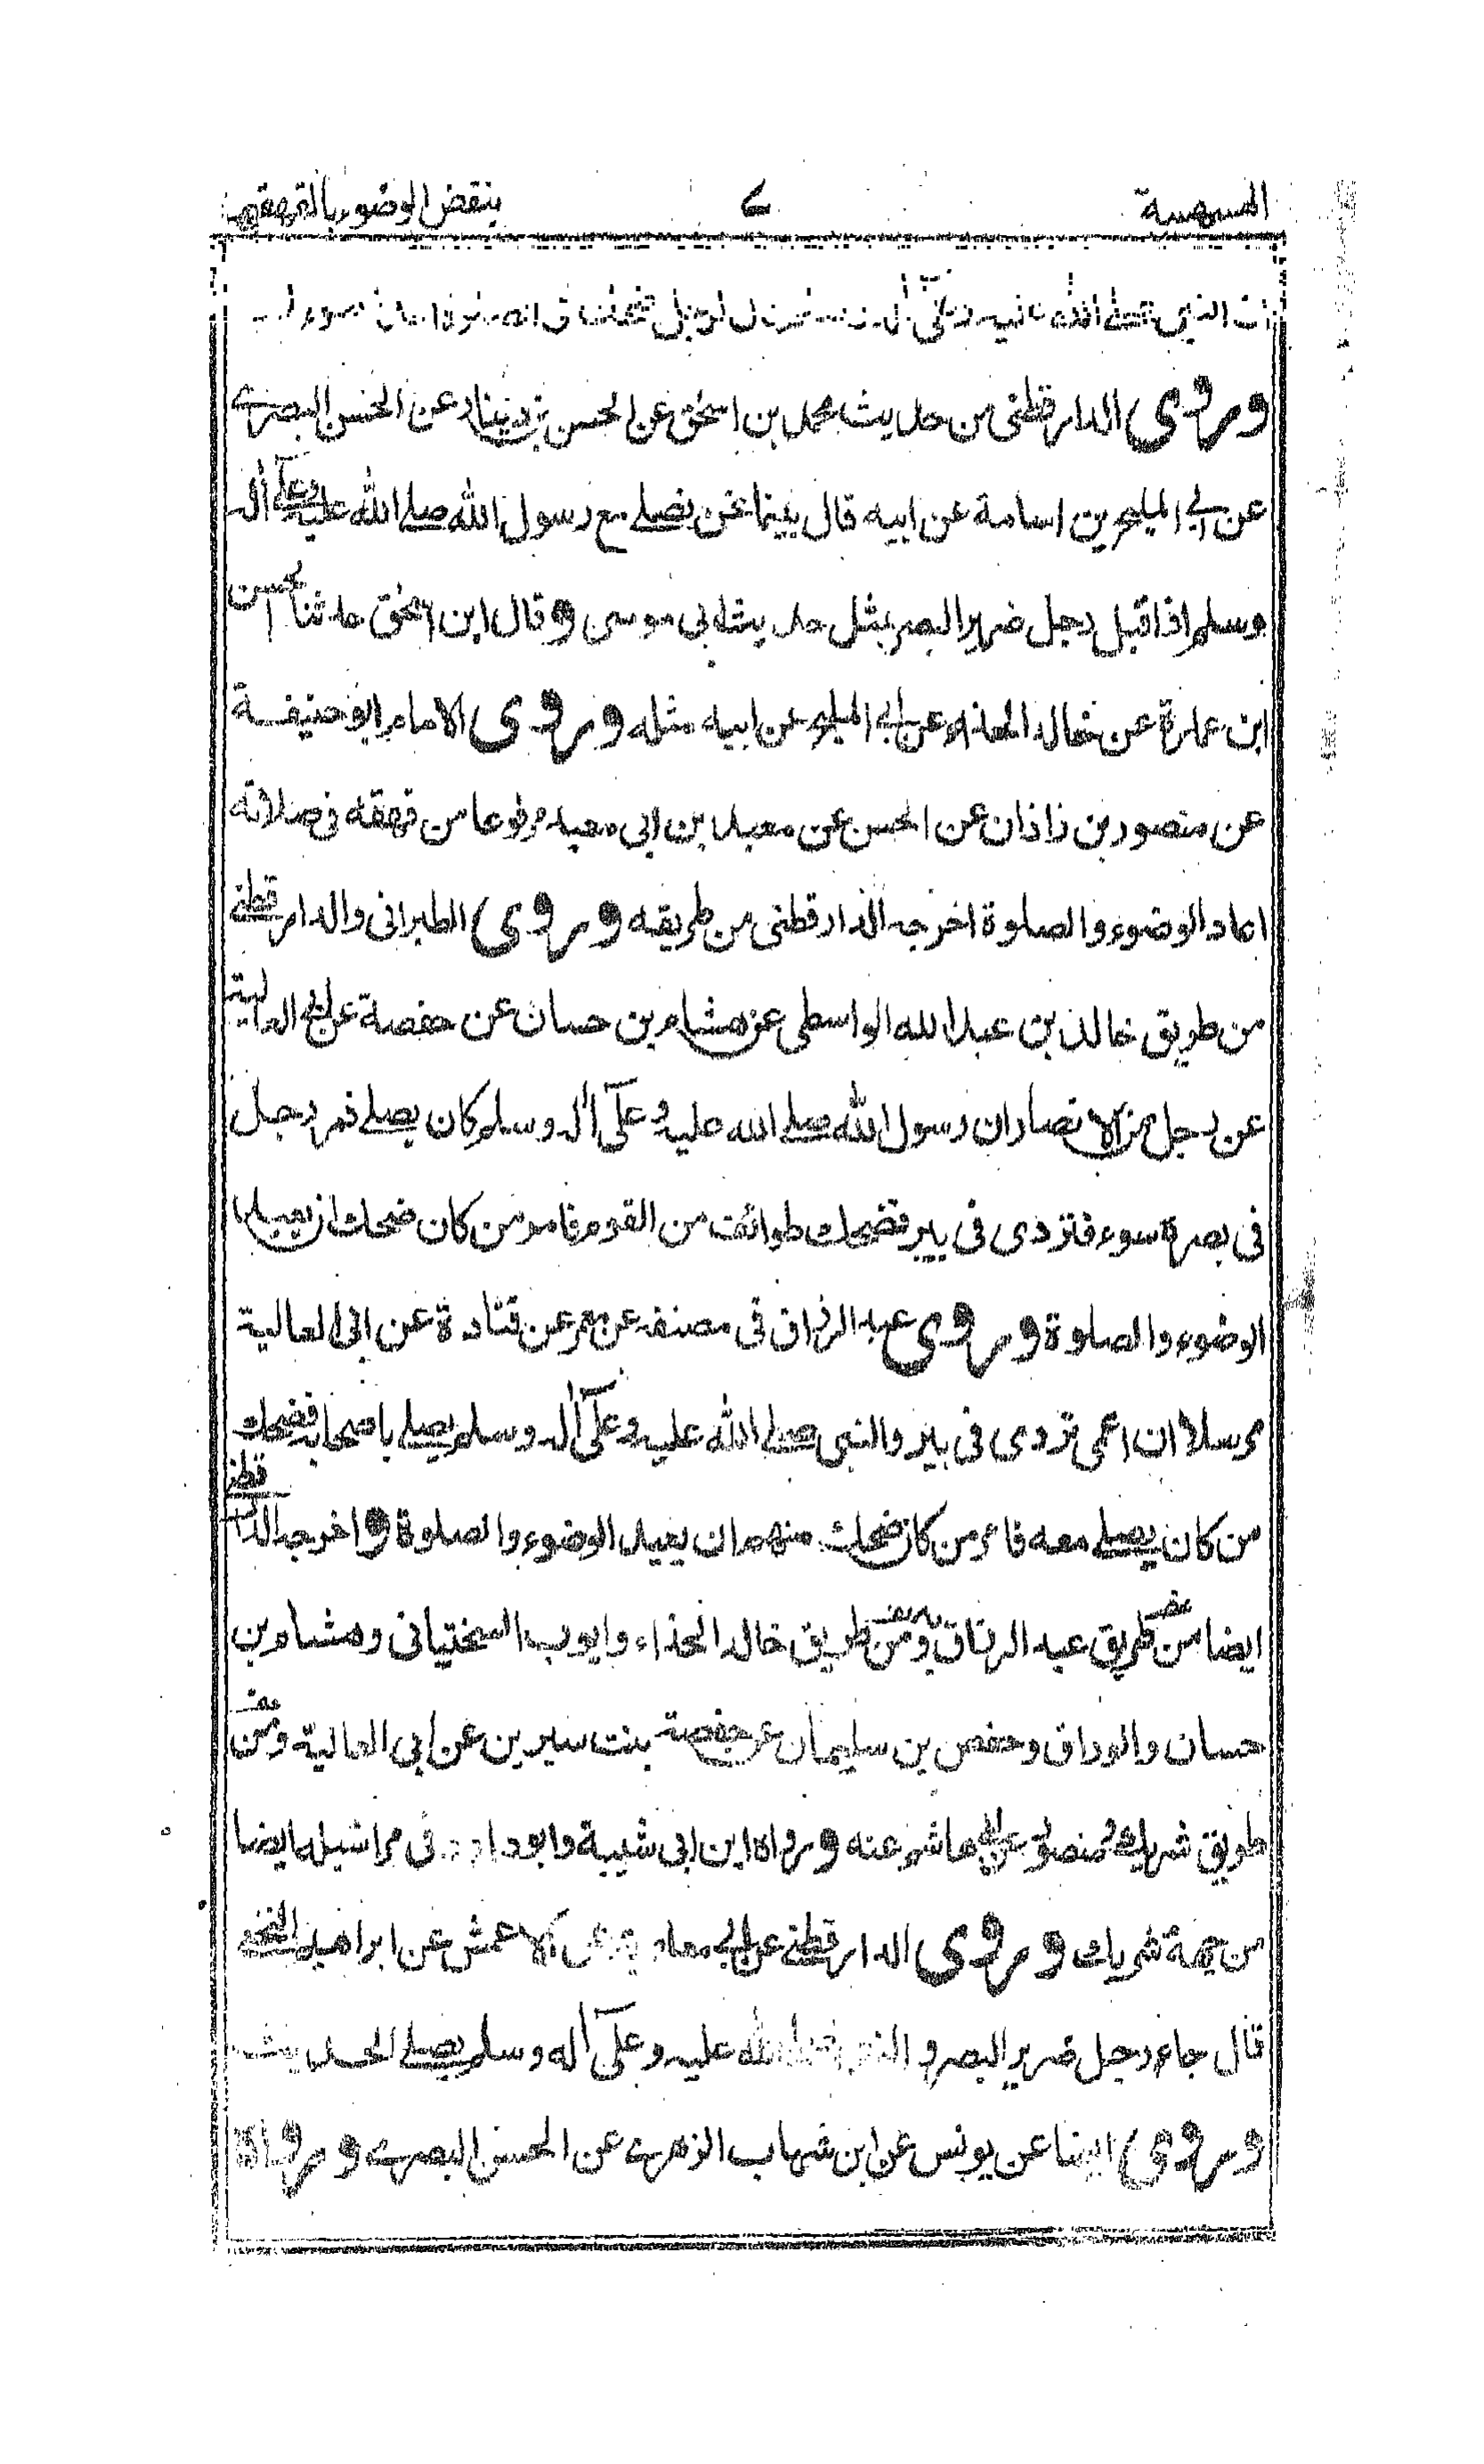 الهسهسة ٧ بنقض الوضوء بالقهقهة
النبي صلى الله عليه وعلى
وروى الدارقطنى من حديث محمد بن اسحق عن الحسن بن دينار عن الحسن البصرے
عن ابي المليح بن اسامة عن ابيه قال بينما نحن نصلے مع رسول الله صلے الله عليه وعلے اٰله
وسلم اذا اقبل رجل ضرير البصر بمثل حديث ابى موسى وقال ابن اسحٰق حدثنا الحسن
ابن عمارة عن خالد الحذاء عن ابي المليح عن ابيه مثله وروى الامام ابو حنيفة
عن منصور بن زاذان عن الحسن عن معبد بن ابى معبد مرفوعا من قهقه فى صلاته
اعاد الوضوء والصلوة اخرجه الدارقطنى من طريقه وروى الطبرانى والدارقطنے
من طريق خالد بن عبد الله الواسطى عن هشام بن حسان عن حفصة عن ابي العالية
عن رجل من الانصار ان رسول الله صلے الله عليه وعلى اٰله وسلم كان يصلے فمر رجل
فى بصره سوء فتردى فى بير فضحك طوائف من القوم فامر من كان ضحك ان يعيد
الوضوء والصلوة وروى عبد الرزاق فى مصنفه عن معمر عن قتادة عن ابى العالية
مرسلا ان اعمى تردى فى بير والنبى صلے الله عليه وعلى اٰله وسلم يصلے باصحابه فضحك
من كان يصلے معه فامر من كان ضحك منهم ان يعيد الوضوء والصلوة واخرجه الدارقطنے
ايضا من طريق عبد الرزاق ومن طريق خالد الحذاء وايوب السختيانى وهشام بن
حسان والوراق وحفص بن سليمان عن حفصة بنت سيرين عن ابي العالية ومن
طريق شريك عن منصور عن ابي هاشم عنه ورواه ابن ابى شيبة وابوداود فى مراسيله ايضا
من جهة شريك وروى الدارقطنے عن ابي معاوية عن الاعمش عن ابراهيم النخعے
قال جاء رجل ضرير البصر والنبي صلے الله عليه وعلى اٰله وسلم يصلے الحديث
وروى ايضا عن يونس عن ابن شهاب الزهرے عن الحسن البصرے ورواه